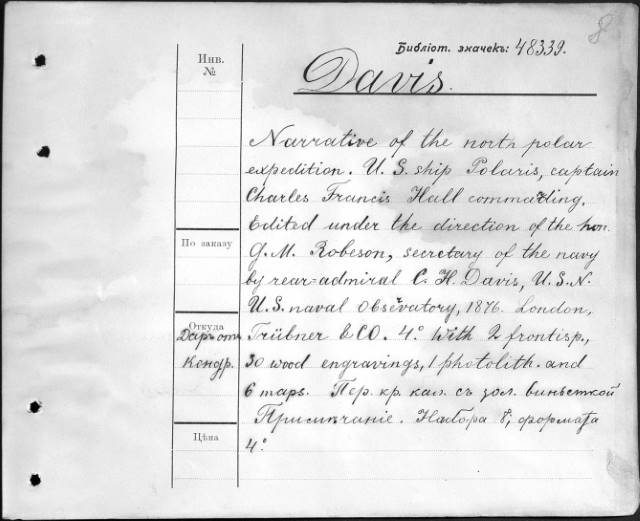 8
Библіот. значекъ: 48339.
Davis.
Инв.
№
Narrative of the north polar
expedition. U. S. ship Polaris, captain
Charles Francis Hall commanding.
Edited under the direction of the hon.
G. M. Robeson, secretary of the navy
by rear-admiral C. H. Davis, U. S. N.
U. S. naval Observatory, 1876. London,
Trübner & CO. 4º. With 2 frontisp.,
30 wood engravings, 1 photolith. and
6 maps. Пер. кр. кал. съ зол. виньеткой
Примѣчаніе. Набора 8º, формата
4º
По заказу
Откуда
Даръ отъ
Кондр.
Цѣна